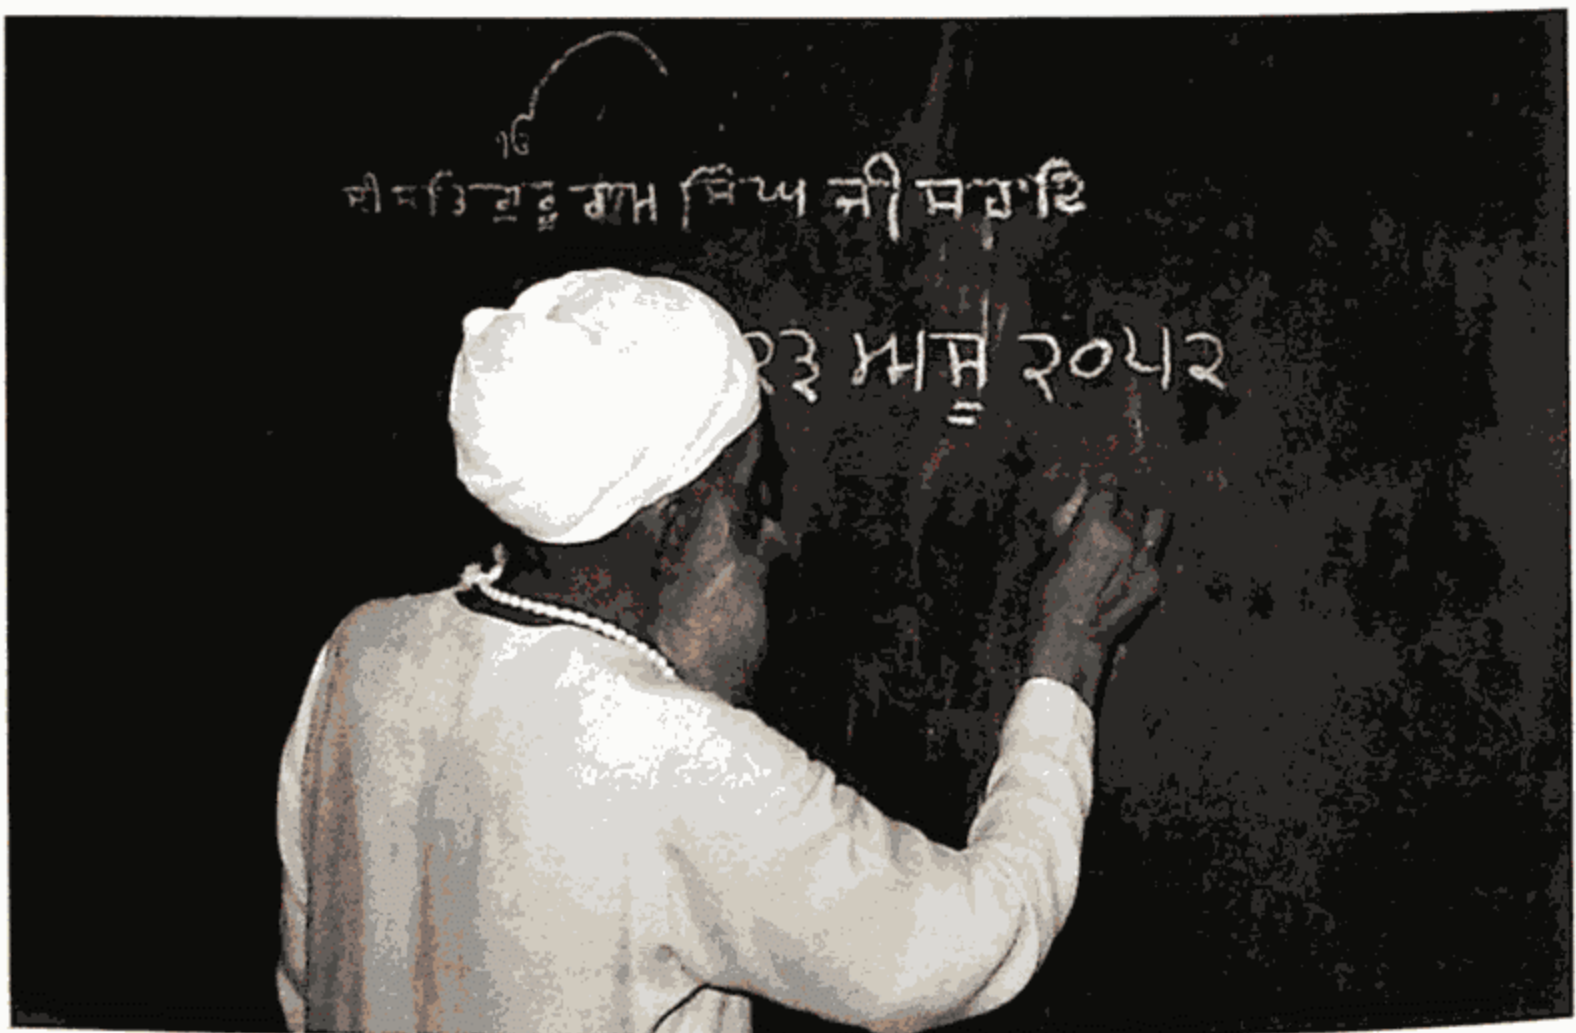 ੴ
ਸ੍ਰੀ ਸਤਿਗੁਰੂ ਰਾਮ ਸਿੰਘ ਜੀ ਸਹਾਇ
੨੩ ਅਸੂ ੨੦੫੨